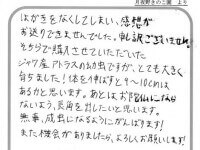 月夜野きのこ園 より
はがきをなくしてしまい、感想が
お送りできませんでした。申し訳ございません。
そちらで購入させていただいた
ジャワ産アトラスの幼虫ですが、とても大きく
育ちました！体をのばすと9〜10cmは
あるかと思います。あとはお
ないよう、気を付けたいと思います。
無事、成虫になるようにがんばります！
また機会がありましたら、よろしくお願いします！